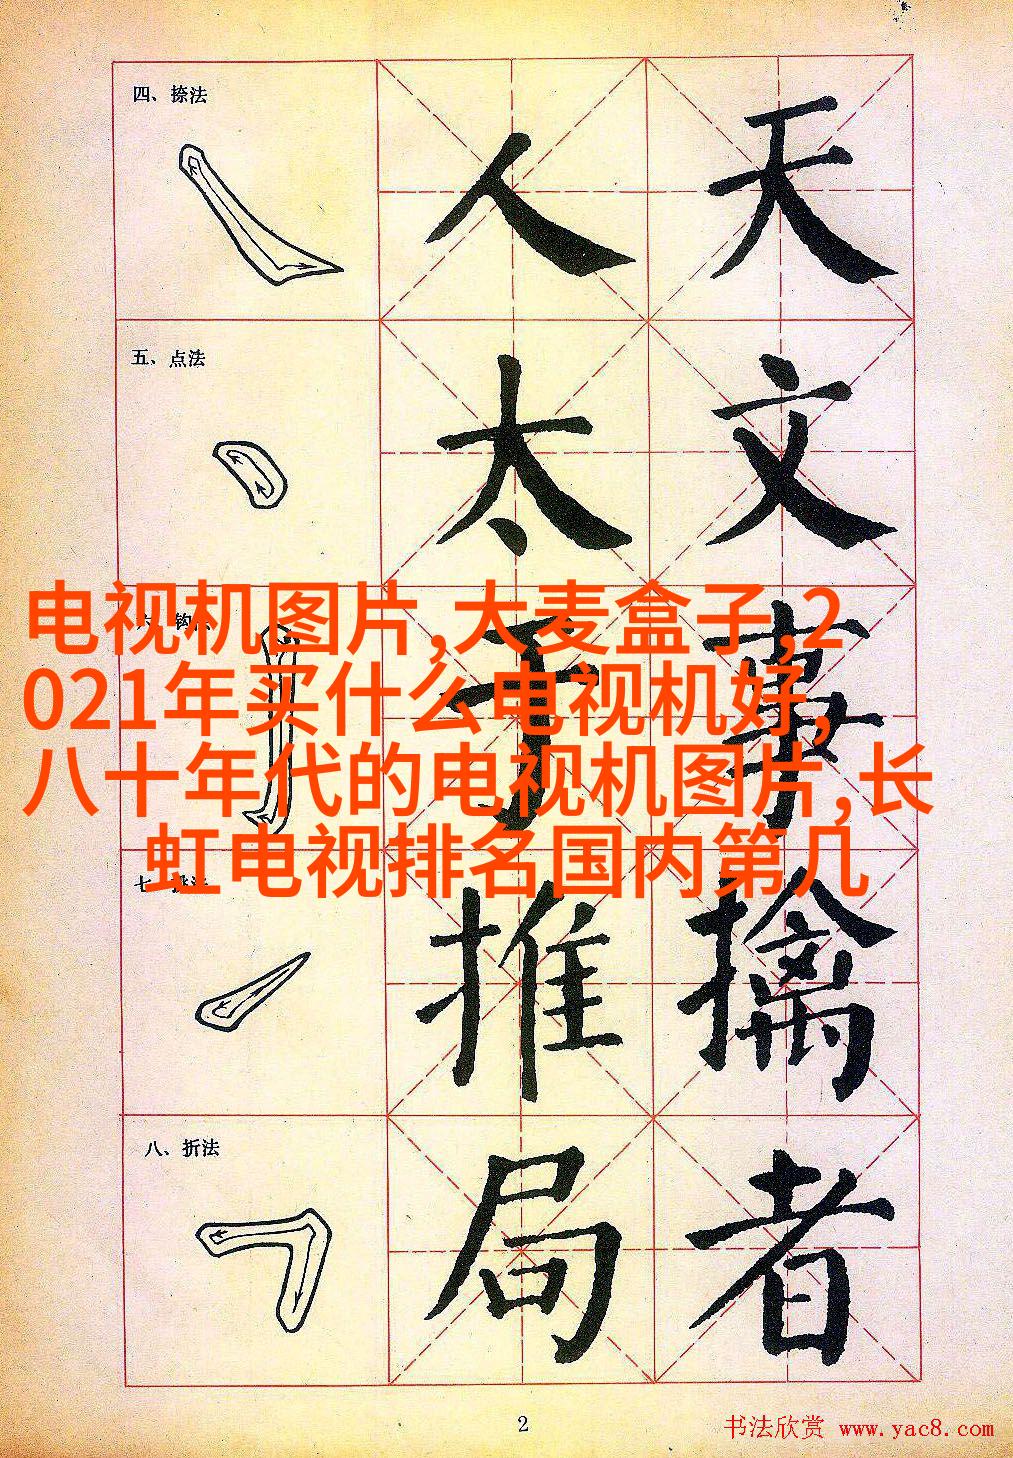 四、捺法
人 天
五、点法
太 文
电视机图片,大麦盒子,2
021年买什么电视机好,
八十年代的电视机图片,长
虹电视排名国内第几
六、钩法
于 事
七、挑法
推 擒
八、折法
局 者
2
书法欣赏 www.yac8.com